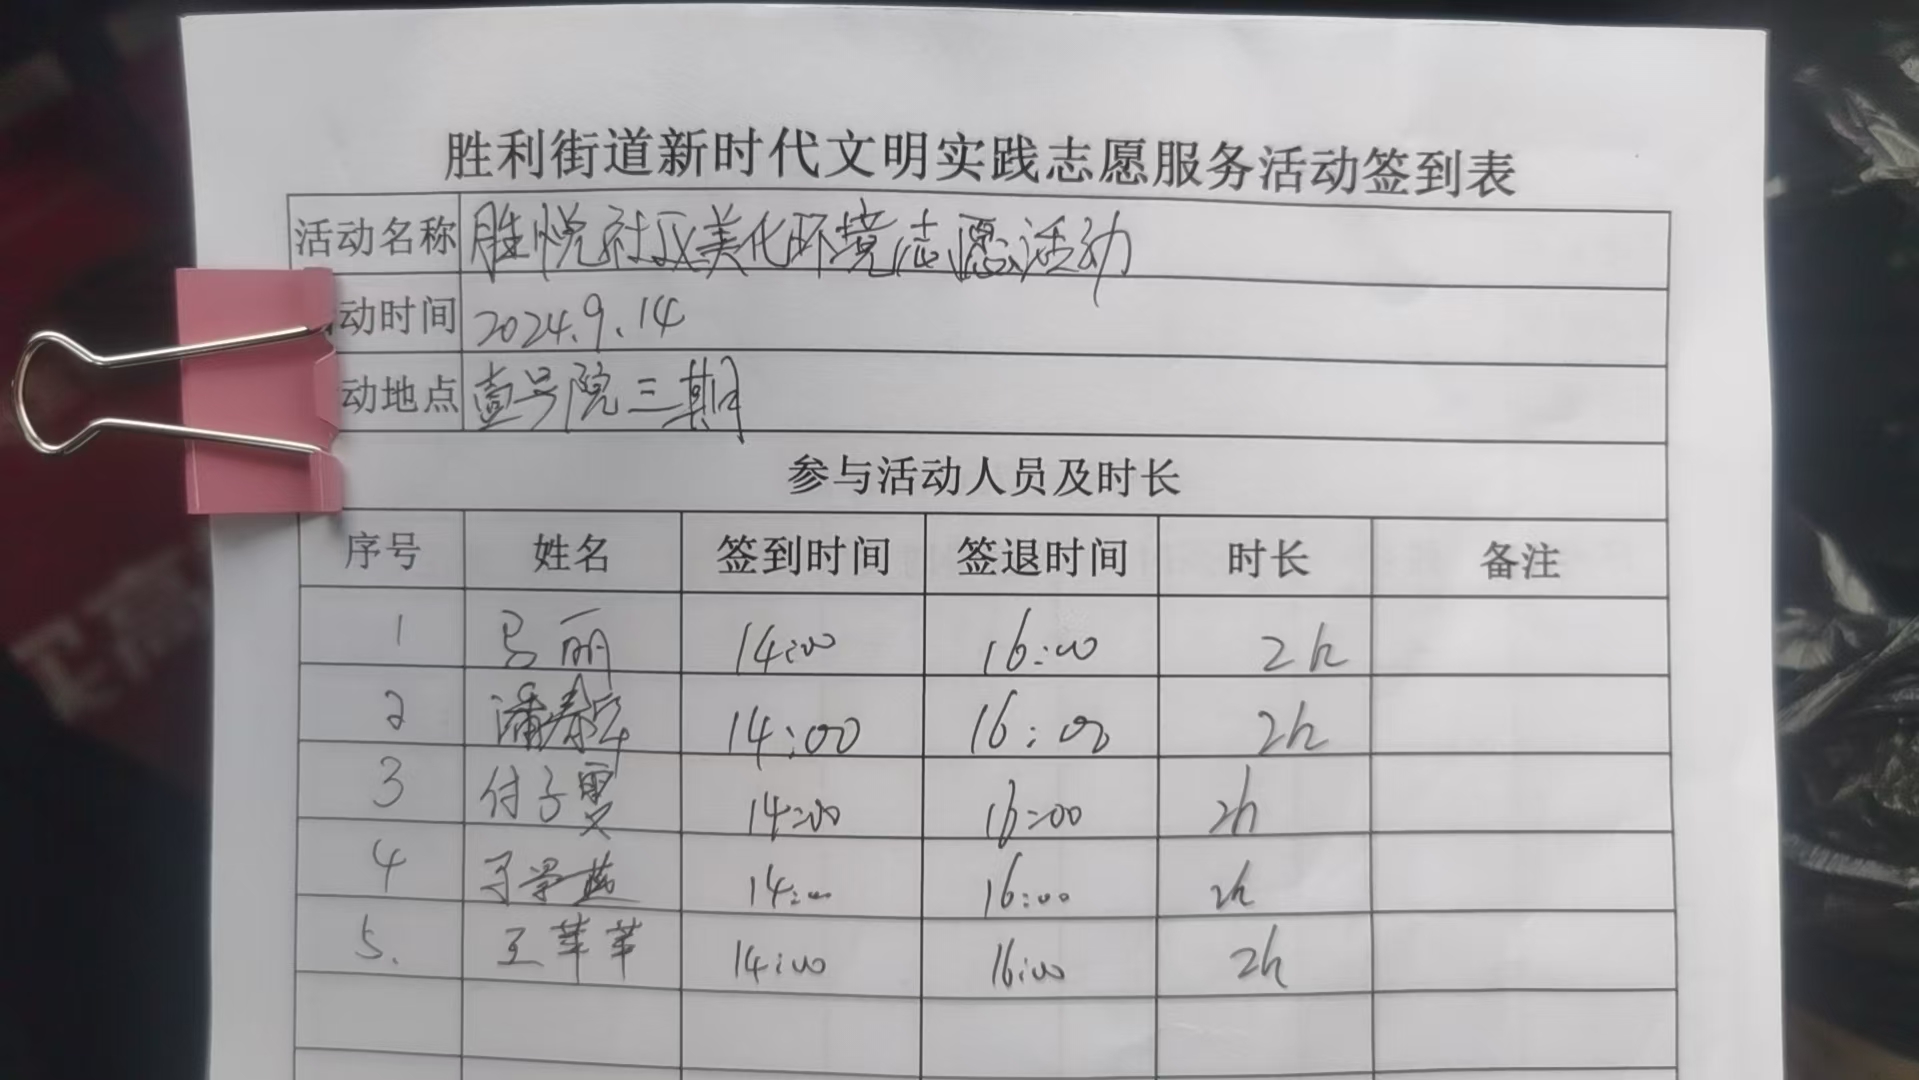 胜利街道新时代文明实践志愿服务活动签到表
活动名称 胜悦社区美化环境志愿活动
动时间 2024.9.14
动地点 壹号院三期
参与活动人员及时长
序号 姓名 签到时间 签退时间 时长 备注
1 马丽 14:00 16:00 2h
2 潘春 14:00 16:00 2h
3 付子雯 14:00 16:00 2h
4 14:00 16:00 2h
5. 王苹苹 14:00 16:00 2h